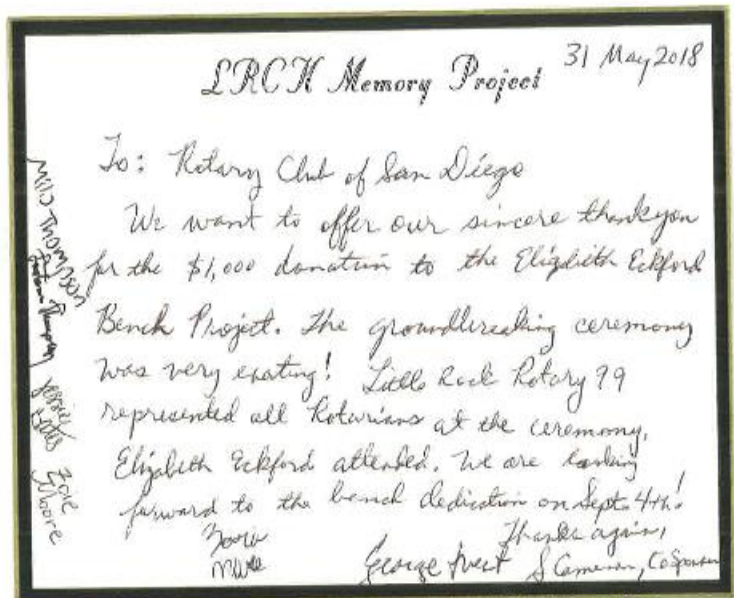 LRCH Memory Project
31 May 2018
To: Rotary Club of San Diego
We want to offer our sincere thankyou
for the $1,000 donation to the Elizabeth Eckford
Bench Project. The groundbreaking ceremony
was very exciting! Little Rock Rotary 99
represented all Rotarians at the ceremony.
Elizabeth Eckford attended. We are looking
forward to the bench dedication on Sept. 4th!
Thanks again,
George West
S Cameron, CoSponsor
Milo Thompson
Thompson
Zoie
Moore